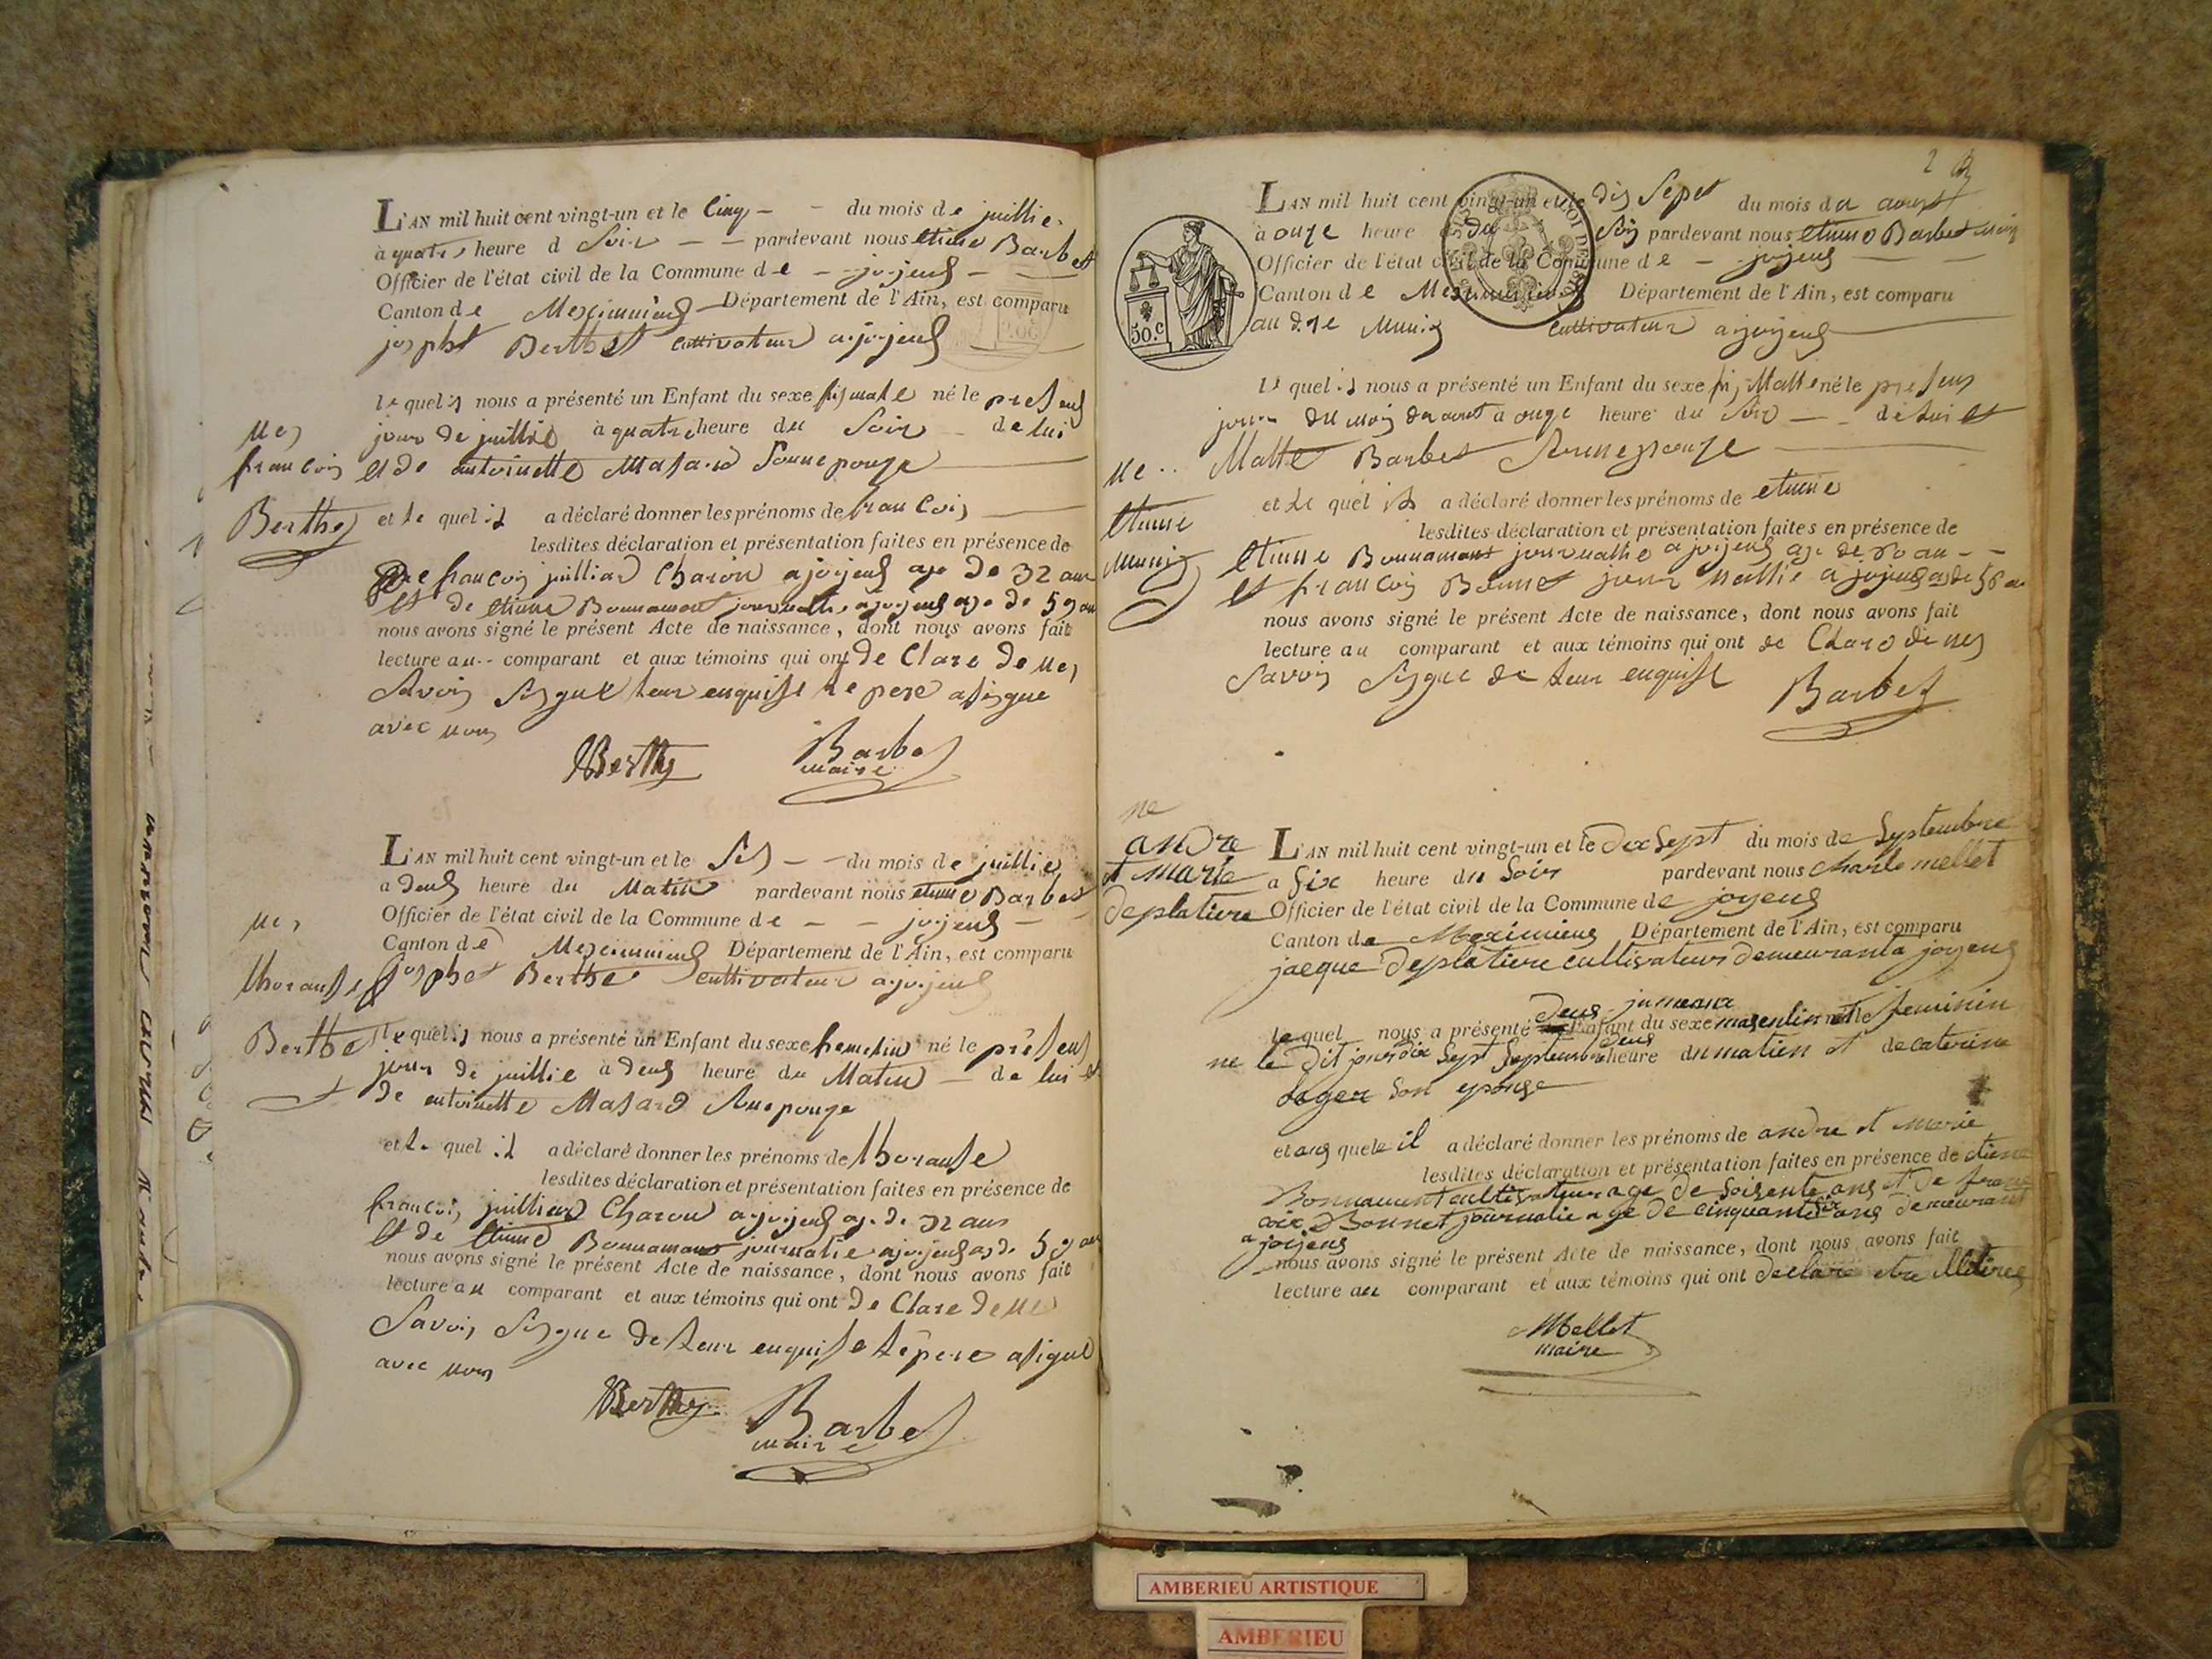 L'AN mil huit cent vingt-un et le Cinq - - du mois de juillie
à quatre heure d Soir - - pardevant nous etiene Barbet
Officier de l'état civil de la Commune de - - joyeus -
Canton de Meximieus Département de l'Ain, est comparu
josphet Berthet cultivateur a joyeus
le quel il nous a présenté un Enfant du sexe né le present
jour de juillie à quatre heure du Soir - de lui
et de antoinette Masard Sonnepouze
et le quel il a déclaré donner les prénoms de francois
lesdites déclaration et présentation faites en présence de
De francois juilliard Charon a joyeus age de 32 ans
et de etiene Bonnamant journalie a joyeus age de 59 an
nous avons signé le présent Acte de naissance, dont nous avons fait
lecture au comparant et aux témoins qui ont de Clare de ne
Savoir Signe leur enquise le pere a signe
avec nous
Berthe
Barbet
maire
Ne
francois
Berthe
L'AN mil huit cent vingt-un et le Sis - - du mois de juillie
a deus heure du Matin pardevant nous etiene Barbet
Officier de l'état civil de la Commune de - - joyeus -
Canton de Meximieus Département de l'Ain, est comparu
josphet Berthe cultivateur a joyeus
le quel il nous a présenté un Enfant du sexe né le present
jour de juillie à deus heure du Matin - de lui et
de antoinette Masard
et le quel il a déclaré donner les prénoms de thoranse
lesdites déclaration et présentation faites en présence de
francois juilliard Charon a joyeus age de 32 ans
et de etiene Bonnamant journalie a joyeus age de 59 an
nous avons signé le présent Acte de naissance, dont nous avons fait
lecture au comparant et aux témoins qui ont de Clare de ne
Savoir Signe de leur enquise le pere a signe
avec nous
Berthe
Barbet
maire
Ne
thoranse
Berthe
2
50.c
L'AN mil huit cent vingt-un et le dis Sept du mois du aoust
à onze heure du Soir pardevant nous etiene Barbet
Officier de l'état civil de la Commune de - joyeus
Canton de Meximieus Département de l'Ain, est comparu
andre Munis cultivateur a joyeus
le quel il nous a présenté un Enfant du sexe né le present
jour du mois de aout à onze heure du Soir - - de lui et
Matte Barbet
et le quel il a déclaré donner les prénoms de etiene
lesdites déclaration et présentation faites en présence de
etiene Bonnamant journalie a joyeus age de an - -
et francois Bonnet journalie a joyeus age de
nous avons signé le présent Acte de naissance, dont nous avons fait
lecture au comparant et aux témoins qui ont de Claro de nes
Savoir Signe de leur enquise
Barbet
Ne
etiene
Munis
L'AN mil huit cent vingt-un et le dix Sept du mois de Septembre
a Six heure du Soir pardevant nous charle mellet
Officier de l'état civil de la Commune de joyeus
Canton de Meximieus Département de l'Ain, est comparu
jacque deplatiere cultivateur demeurant a joyeus
deus jumeaux
le quel nous a présenté Enfant du sexe masculin et le feminin
ne le dit jour dix Sept Septembre a deus heure du matien et de caterine
Son epouse
et aus quele il a déclaré donner les prénoms de andre et marie
lesdites déclaration et présentation faites en présence de etiene
Bonnamant cultivateur age de soisente ans et de fran
coix Bonnet journalie age de cinquante six ans demeurant
a joyeus
nous avons signé le présent Acte de naissance, dont nous avons fait
lecture au comparant et aux témoins qui ont declare etre illitires
Mellet
maire
ne
andre
et marie
deplatiere
AMBERIEU ARTISTIQUE
AMBERIEU